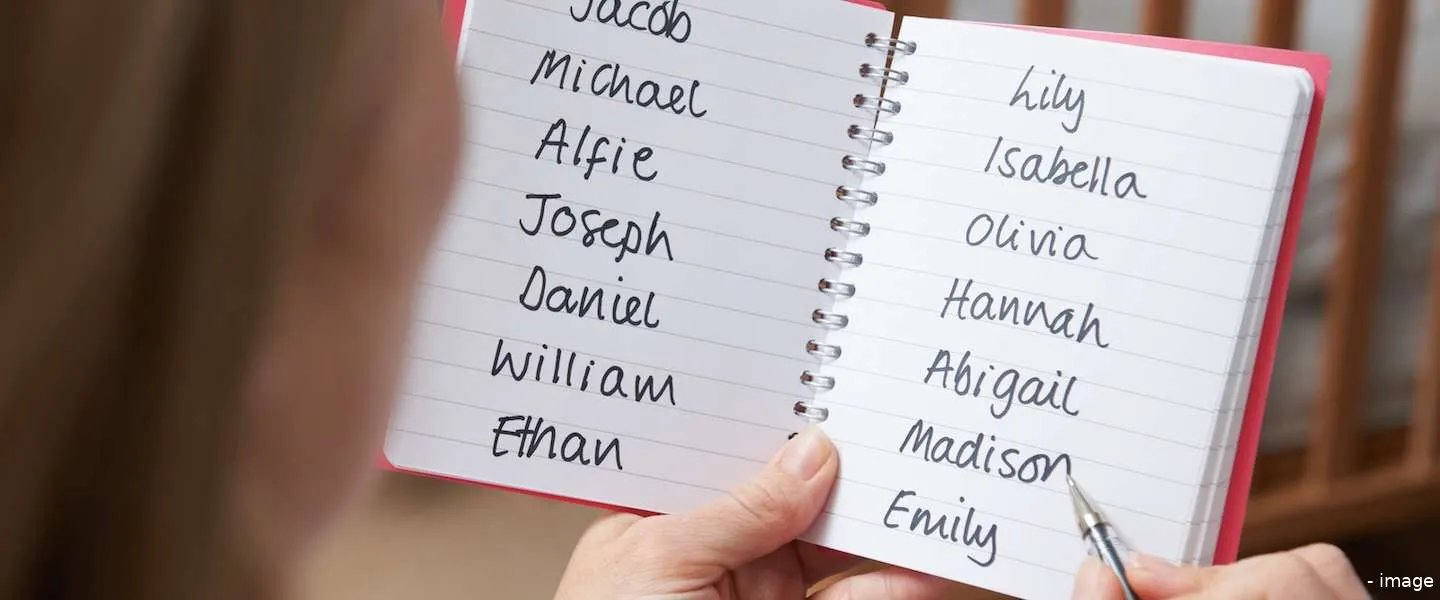 Jacob
Michael
Alfie
Joseph
Daniel
William
Ethan
Lily
Isabella
Olivia
Hannah
Abigail
Madison
Emily
- image